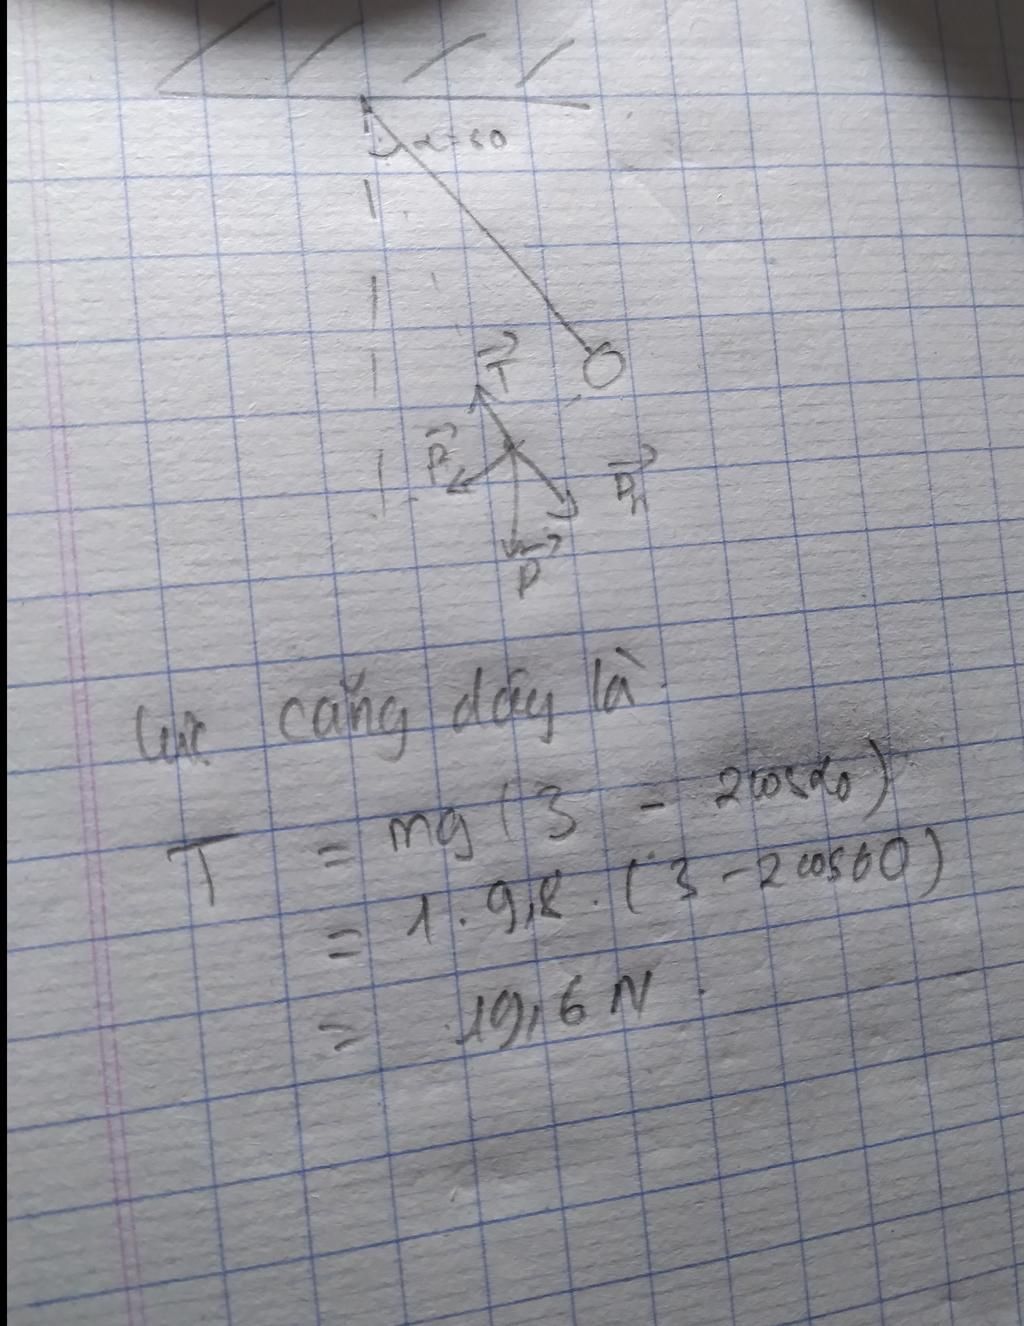 α = 60
T
P
Pn
P
lực căng dây là
T = mg (3 - 2cosα0)
= 1 . 9,8 . (3 - 2 cos60)
= 19,6 N